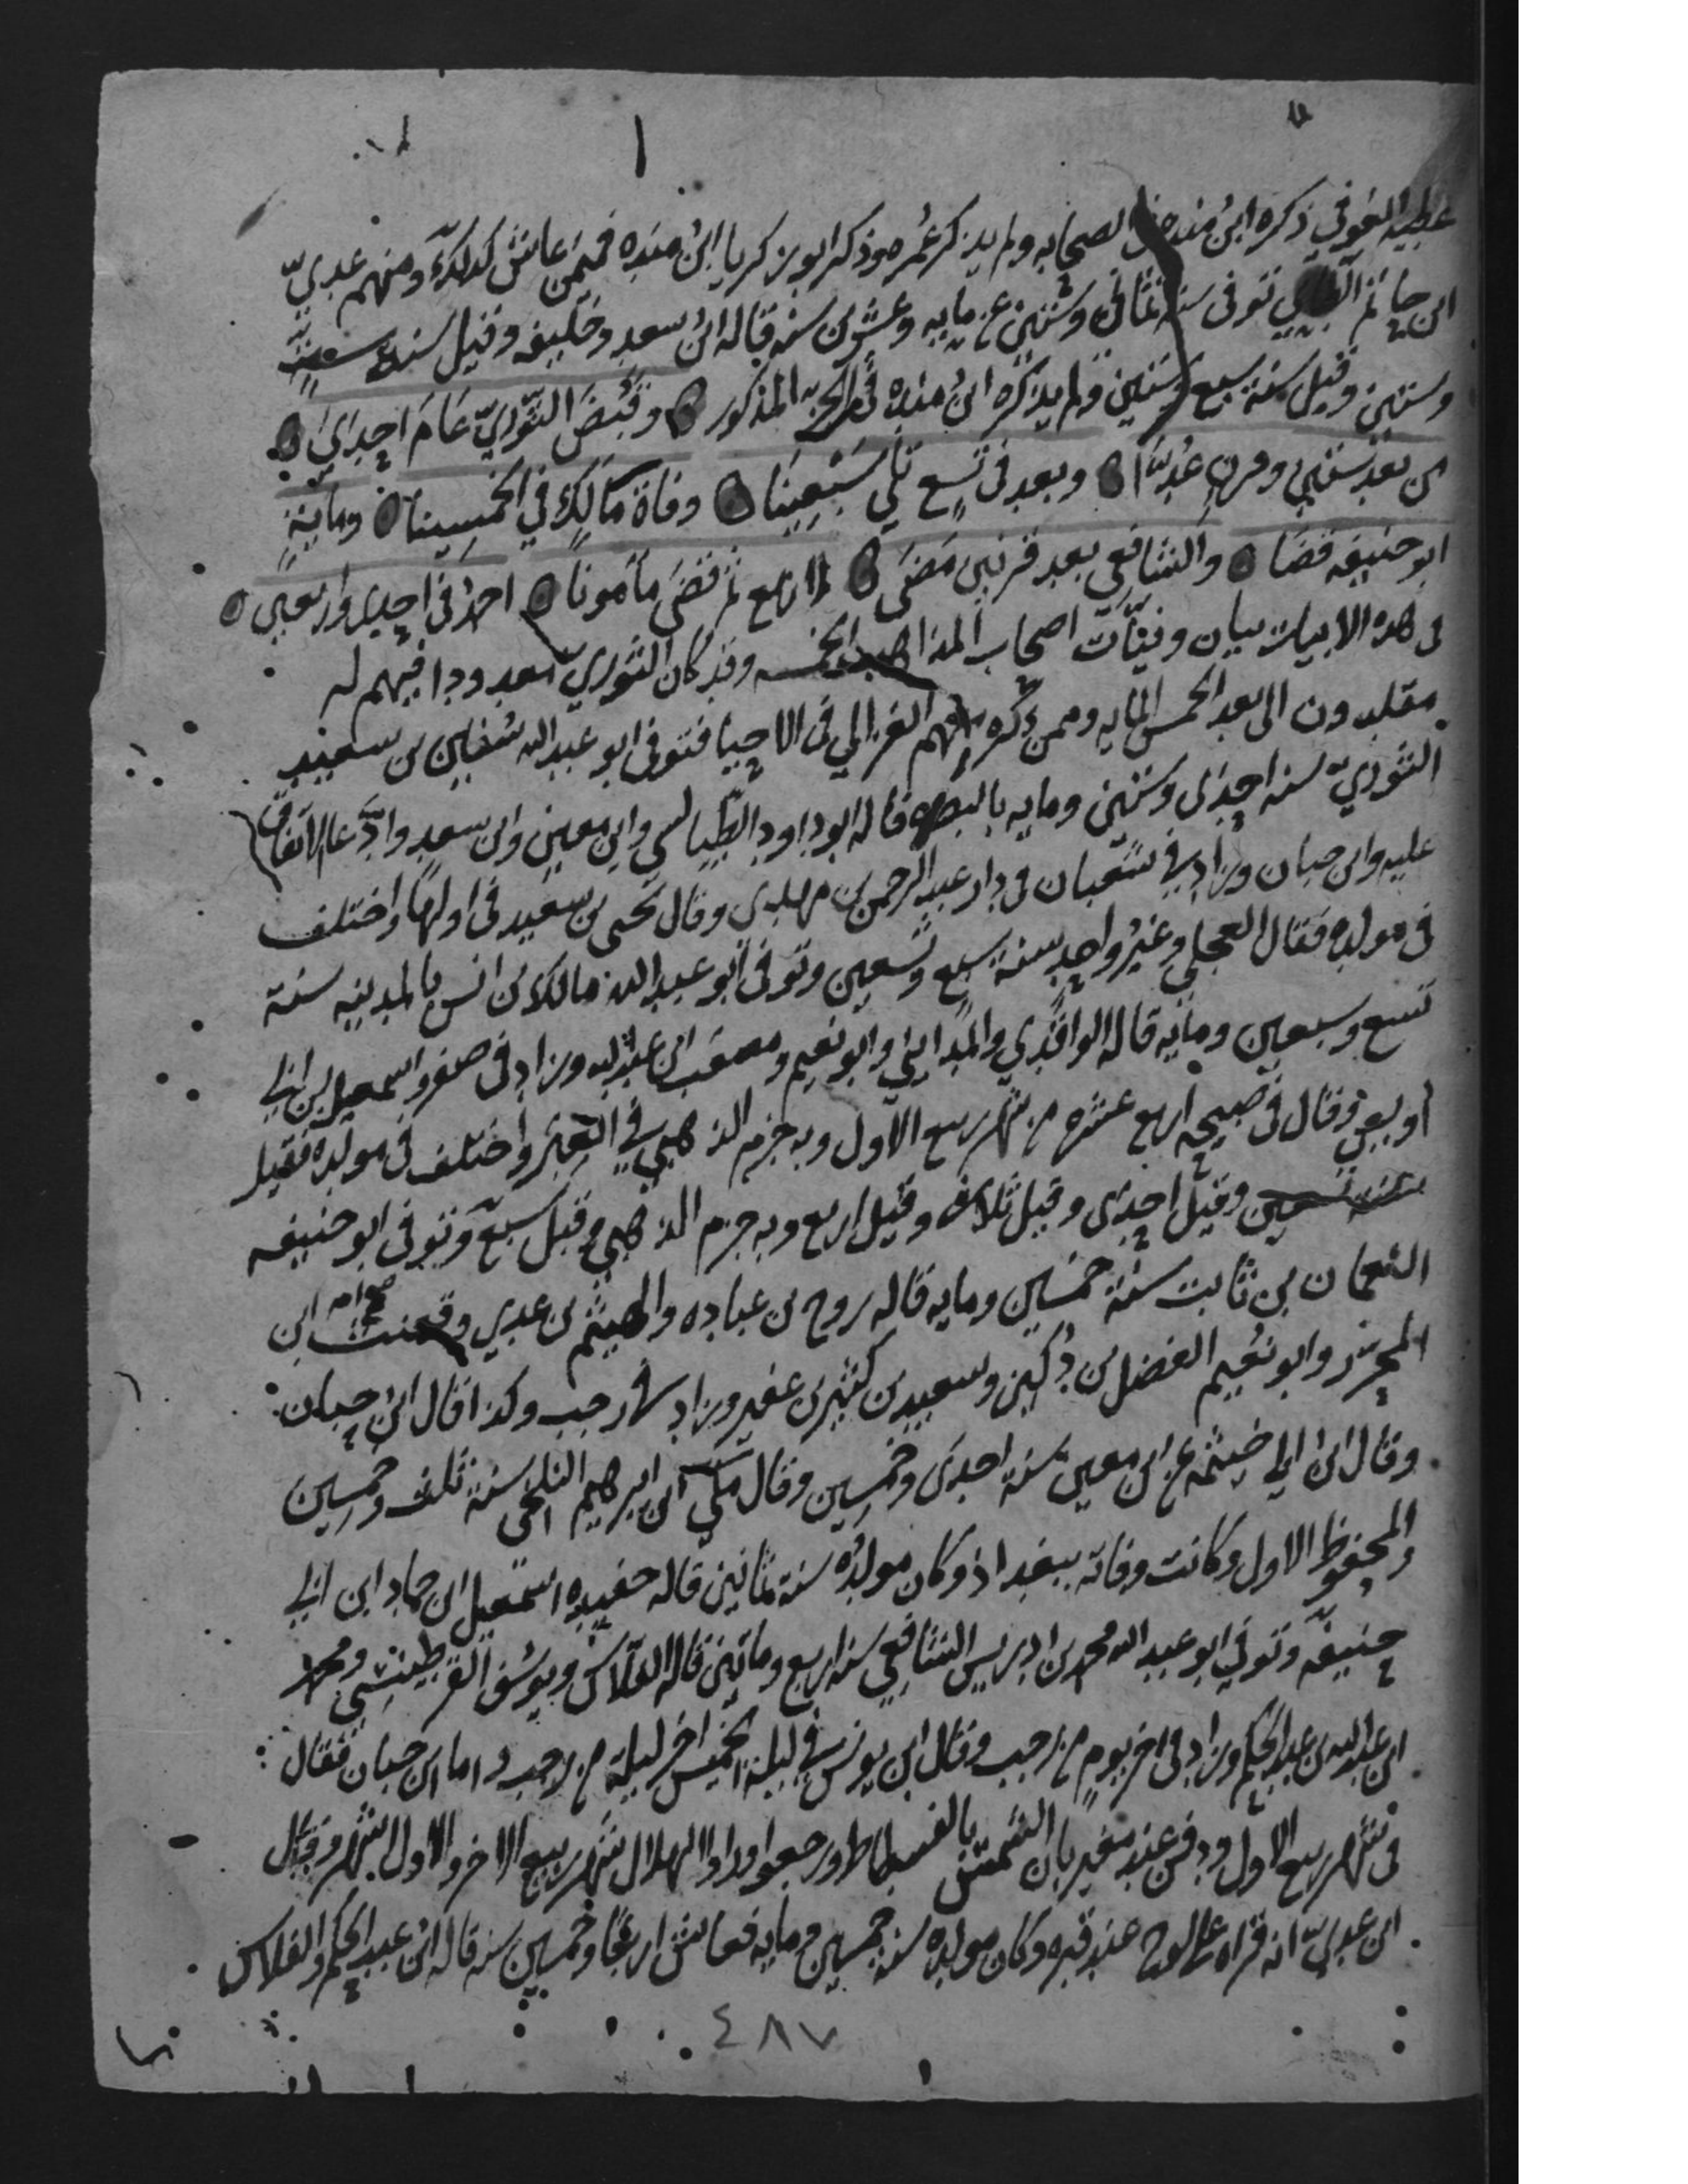 عطيه العوفي ذكره ابن منده في الصحابه ولم يذكر عمره وذكر ابو زكريا ابن منده فيمن عاش كذلك ومنهم عدي
ابن حاتم الطايي توفى سنه ثمان وستين عن مايه وعشرين سنه قاله ابن سعد وخليفه وقيل سنه ست
وستين وقيل سنة سبع وستين ولم يذكره ابن منده في الجزء المذكور وقبض الثوري عام احدى
من بعد ستين وقرن عدا وبعد في تسع تلي سبعينا وفاة مالك وفي الخمسينا ومائة
ابو حنيفه قضا والشافعي بعد قرنين مضى لاربع ثم قضى مامونا احمد في احدى واربعين
في هذه الابيات بيان وفيات اصحاب المذاهب الخمسه وقد كان الثوري معدودا فيهم له
مقلدون الى بعد الخمس المايه وممن ذكره معهم الغزالي في الاحيا فتوفى ابو عبد الله سفيان بن سعيد
الثوري سنه احدى وستين ومايه بالبصره قاله ابو داود الطيالسي وابن معين وابن سعد وادعا الاتفاق
عليه وابن حبان وزاد في شعبان في دار عبد الرحمن بن مهدي وقال يحيى بن سعيد في اولها واختلف
في مولده فقال العجلي وغير واحد سنة سبع وتسعين وتوفى ابو عبد الله مالك بن انس بالمدينه سنة
تسع وسبعين ومايه قاله الواقدي والمدايني وابو نعيم ومصعب ابن عبد الله وزاد في صفر واسمعيل بن ابي
اويس وقال في صبيحه اربع عشره من شهر ربيع الاول وبه جزم الذهبي في العبر واختلف في مولده فقيل
سنه تسعين وقيل احدى وقيل ثلاث وقيل اربع وبه جزم الذهبي وقيل سبع وتوفى ابو حنيفه
النعمان بن ثابت سنة خمسين ومايه قاله روح بن عباده والهيثم بن عدي وقعنب ابن
المحرر وابو نعيم الفضل بن دكين وسعيد بن كثير بن عفير وزاد في رجب وكذا قال ابن حبان
وقال ابن ابي خيثمه عن ابن معين سنة احدى وخمسين وقال مكي ابن ابرهيم البلخي سنة ثلث وخمسين
والمحفوظ الاول وكانت وفاته ببغداذ وكان مولده سنة ثمانين قاله حفيده اسمعيل ابن حماد ابن ابي
حنيفه وتوفي ابو عبد الله محمد بن ادريس الشافعي سنه اربع ومايتين قاله الفلاس ويوسف القراطيسي ومحمد
ابن عبد الله بن عبد الحكم وزاد في اخر يوم من رجب وقال ابن يونس في ليلة الخميس اخر ليلة من رجب واما ابن حبان فقال
في شهر ربيع الاول ودفن عند مغيربان الشمس بالفسطاط ورجعوا وراوا الهلال شهر ربيع الاخر والاول اشهر وقال
ابن عدي انه قراه على لوح عند قبره وكان مولده سنه خمسين ومايه فعاش اربعا وخمسين سنه قاله ابن عبد الحكم والفلاس
٤٨٧